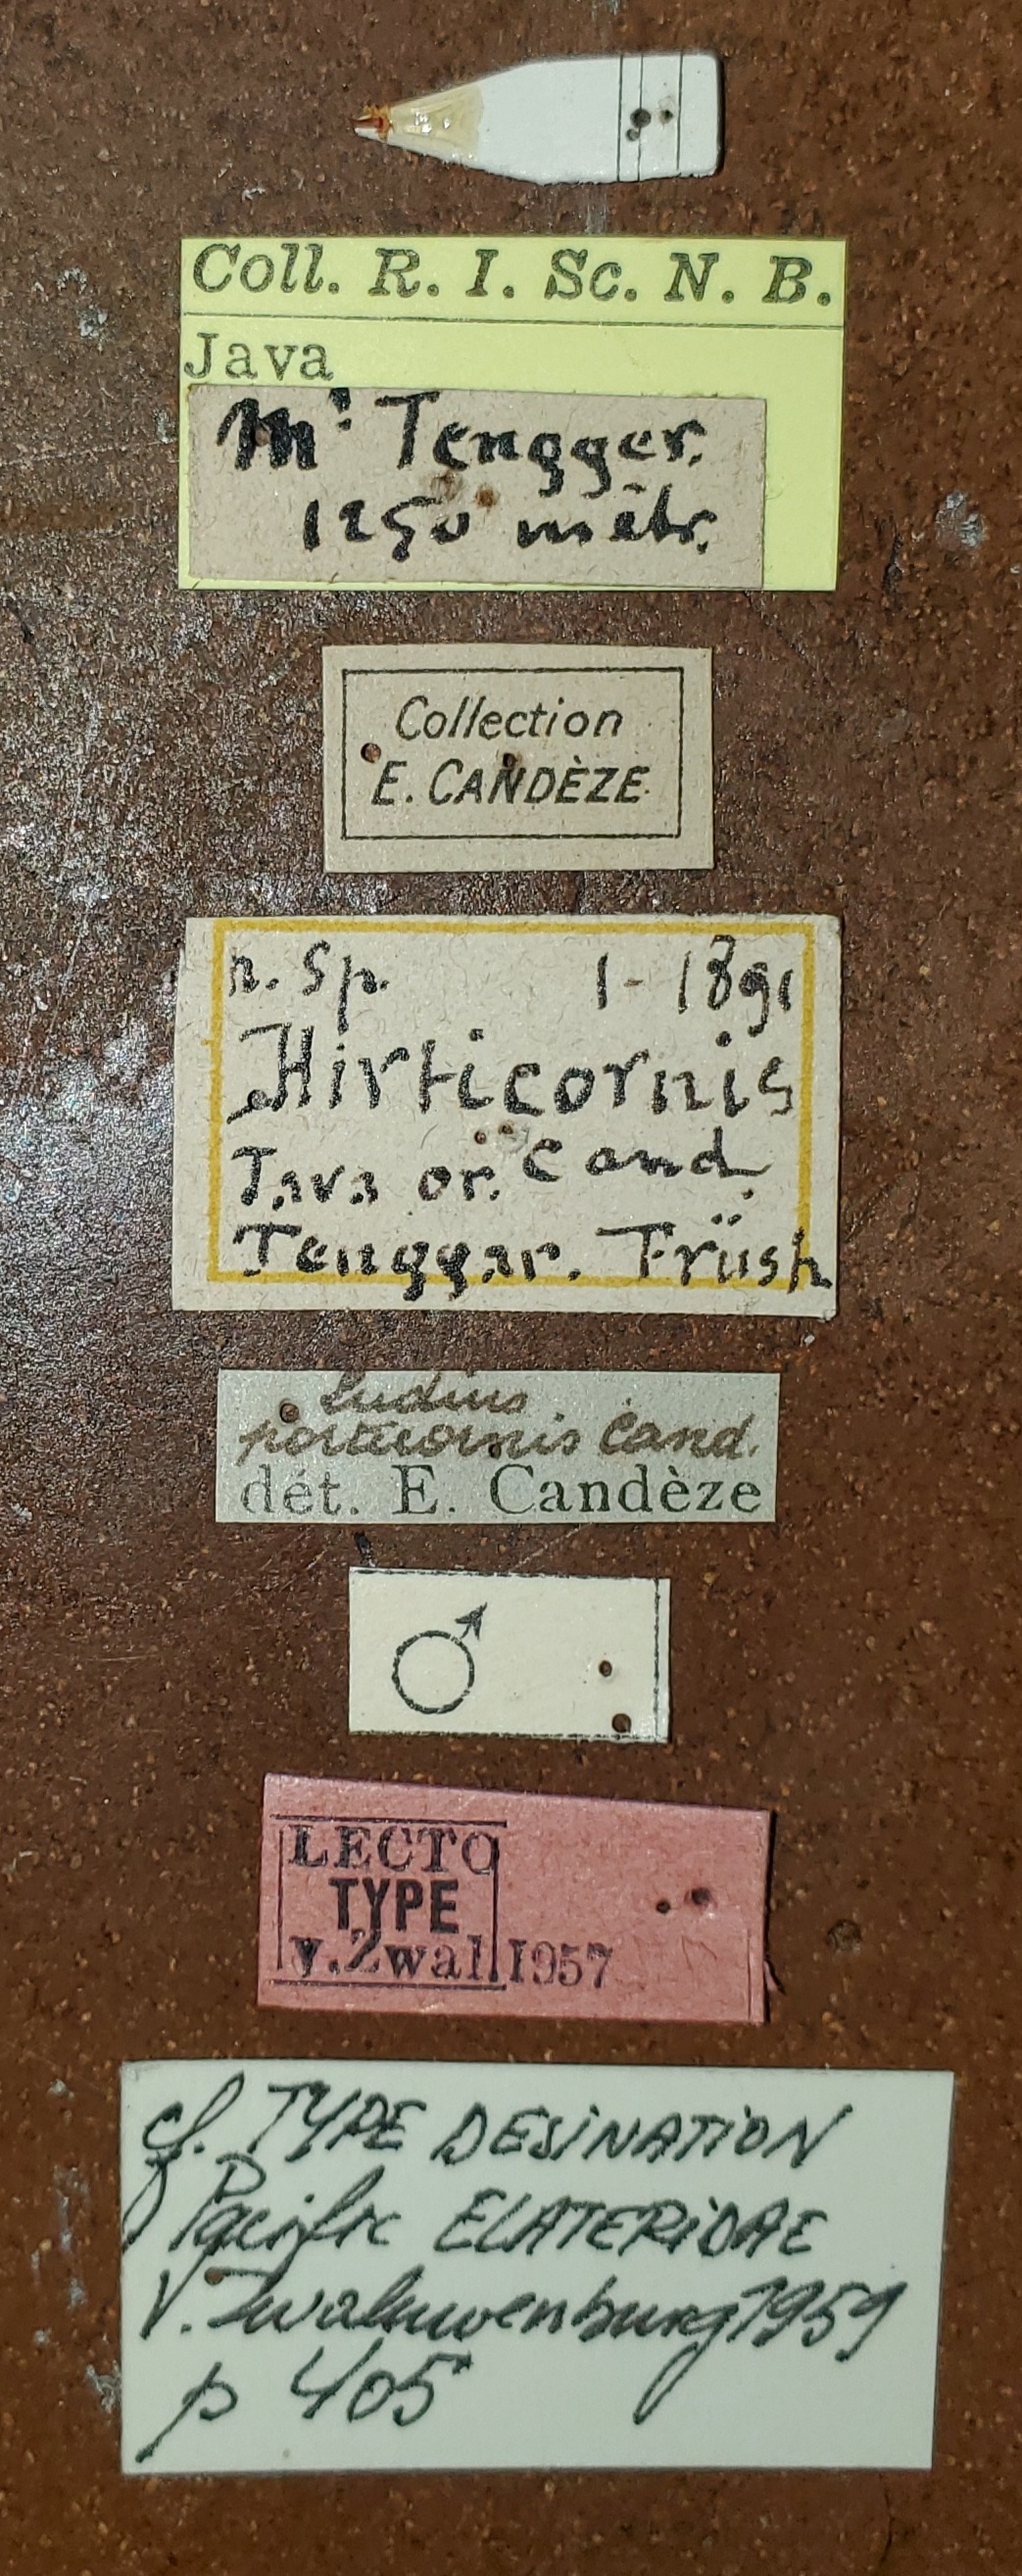 Coll. R. I. Sc. N. B.
Java
Mt Tengger.
1250 mètr.
Collection
E. CANDÈZE
n. Sp. 1-1891
Hirticornis
Java or. Cand.
Tenggar. Früsh
Ludius
cand.
dét. E. Candèze
♂
LECTO
TYPE
v.Zwal. 1957
cf. TYPE DESiNATiON
Pacific ELATERiDAE
V. Zwaluwenburg 1959
p 405